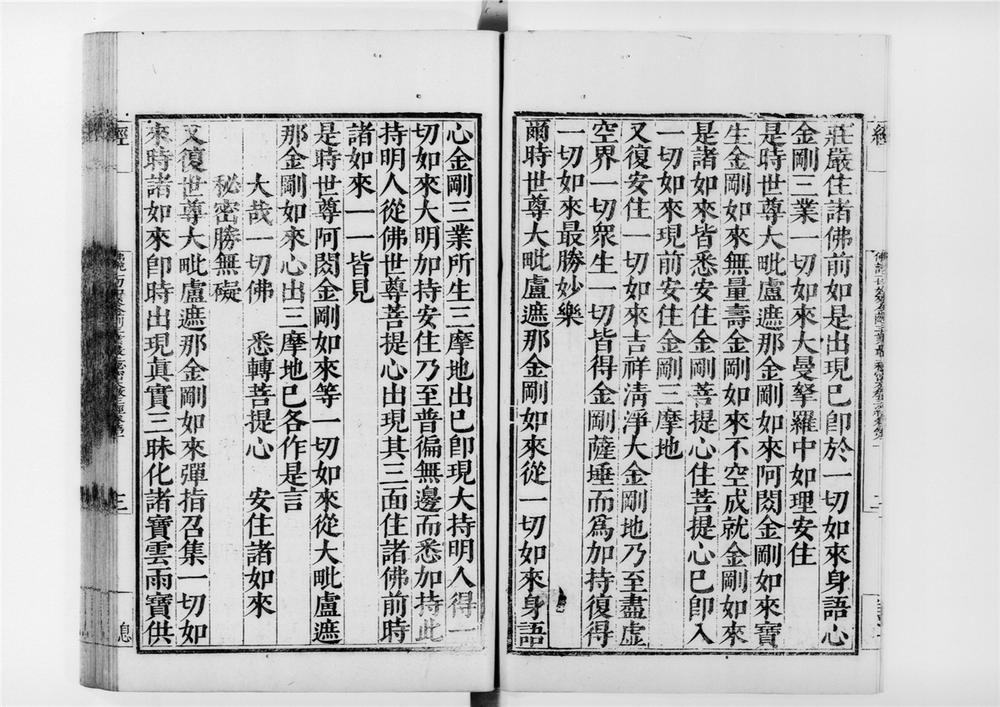 莊嚴住諸佛前如是出現已卽於一切如來身語心
金剛三業一切如來大曼拏羅中如理安住
是時世尊大毗盧遮那金剛如來阿閦金剛如來寶
生金剛如來無量壽金剛如來不空成就金剛如來
是諸如來皆悉安住金剛菩提心住菩提心已卽入
一切如來現前安住金剛三摩地
又復安住一切如來吉祥清淨大金剛地乃至盡虛
空界一切衆生一切皆得金剛薩埵而爲加持復得
一切如來最勝妙樂
爾時世尊大毗盧遮那金剛如來從一切如來身語
心金剛三業所生三摩地出已卽現大持明人得一
切如來大明加持安住乃至普徧無邊而悉加持此
持明人從佛世尊菩提心出現其三面住諸佛前時
諸如來一一皆見
是時世尊阿閦金剛如來等一切如來從大毗盧遮
那金剛如來心出三摩地已各作是言
大哉一切佛　悉轉菩提心　安住諸如來
秘密勝無礙
又復世尊大毗盧遮那金剛如來彈指召集一切如
來時諸如來卽時出現眞實三昧化諸寶雲雨寶供
經
三
總